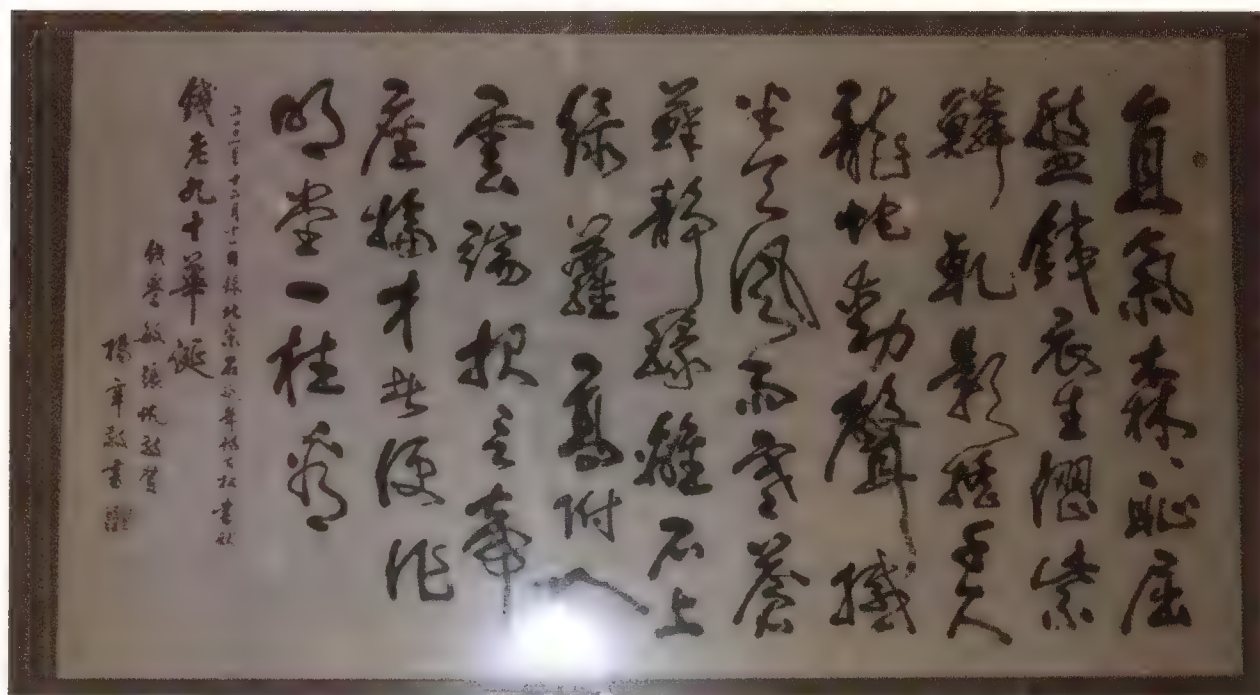 直氣森〻恥屈
盤鐵衣生澀紫
鱗乾影摇千尺
龍蛇動聲撼
半天風雨寒蒼
蘚靜緣離石上
綠蘿高附入
雲端报言帝
座掄才者便作
明堂一柱看
二〇〇一年十二月十一日録北宋石延年詩古松書献
錢老九十華誕
錢學敏張敬賀
楊敬書